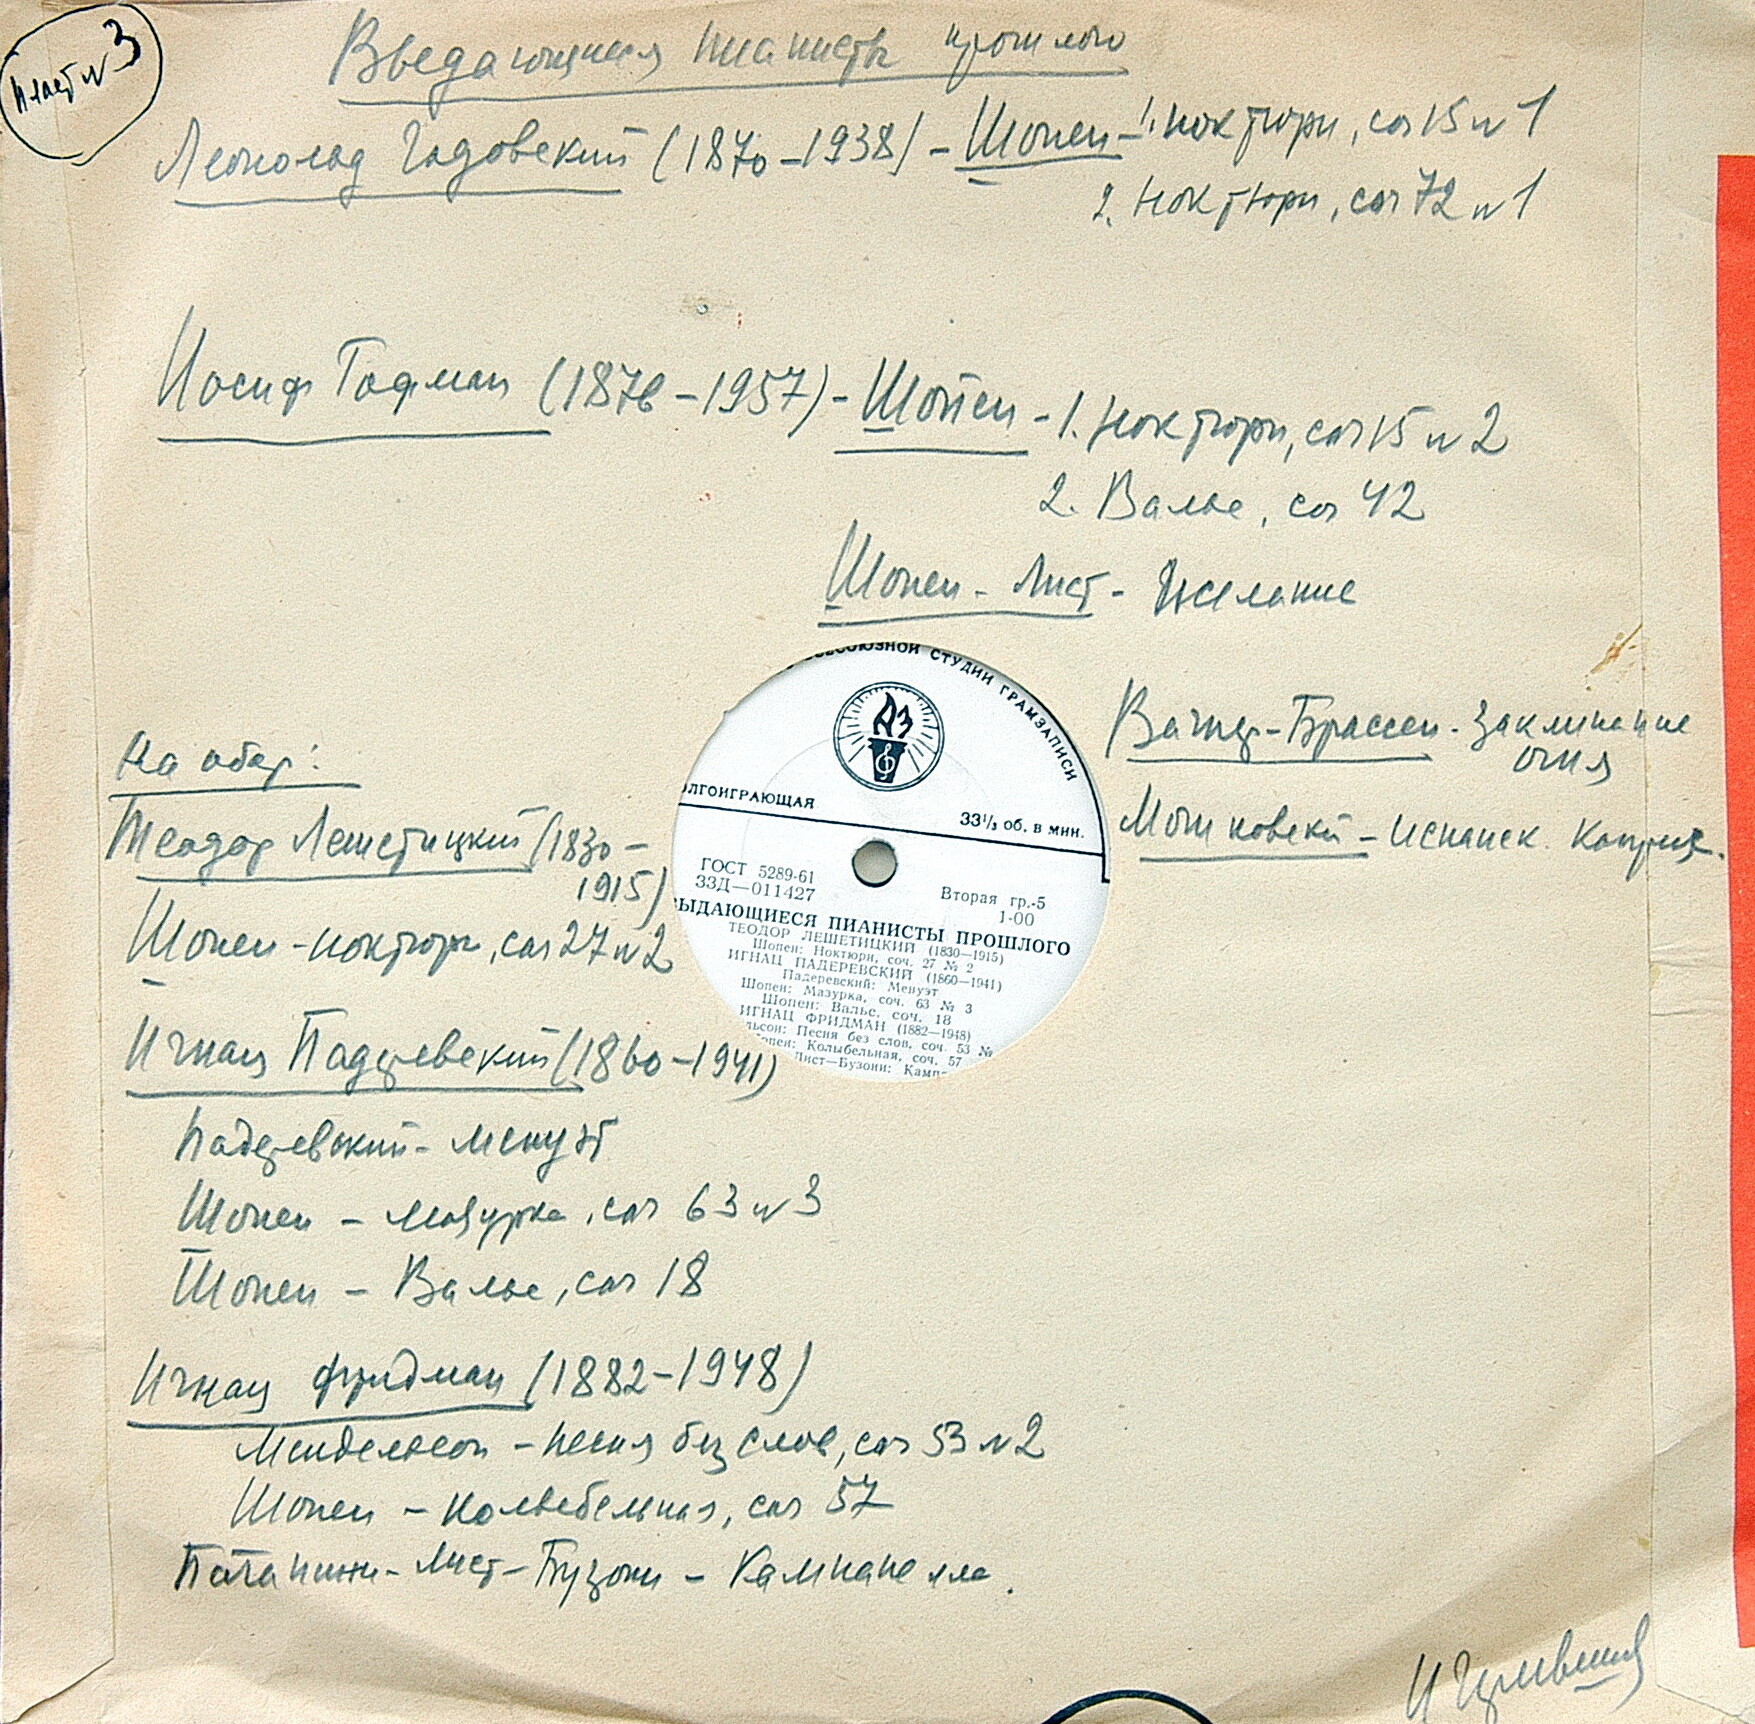 Пласт № 3
Выдающиеся пианисты прошлого
Леопольд Годовский (1870–1938) – Шопен – 1. Ноктюрн, соч 15 № 1
2. Ноктюрн, соч 72 № 1
Иосиф Гофман (1876–1957) – Шопен – 1. Ноктюрн, соч 15 № 2
2. Вальс, соч 42
Шопен – Лист – Желание
Вагнер – Брассен – Заклинание
огня
Мошковский – Испанск. Каприч.
На обор:
Теодор Лешетицкий (1830–
1915)
Шопен – ноктюрн, соч 27 № 2
Игнац Падеревский (1860–1941)
Падеревский – Менуэт
Шопен – Мазурка, соч 63 № 3
Шопен – Вальс, соч 18
Игнац Фридман (1882–1948)
Мендельсон – Песня без слов, соч 53 № 2
Шопен – Колыбельная, соч 57
Паганини – Лист – Бузони – Кампанелла.
ВСЕСОЮЗНОЙ СТУДИИ ГРАМЗАПИСИ
АЗ
ЛГОИГРАЮЩАЯ
33⅓ об. в мин.
ГОСТ 5289-61
33Д—011427
Вторая гр.-5
1-00
ВЫДАЮЩИЕСЯ ПИАНИСТЫ ПРОШЛОГО
ТЕОДОР ЛЕШЕТИЦКИЙ (1830—1915)
Шопен: Ноктюрн, соч. 27 № 2
ИГНАЦ ПАДЕРЕВСКИЙ (1860—1941)
Падеревский: Менуэт
Шопен: Мазурка, соч. 63 № 3
Шопен: Вальс, соч. 18
ИГНАЦ ФРИДМАН (1882—1948)
льсон: Песня без слов, соч. 53 №
опен: Колыбельная, соч. 57
Лист—Бузони: Камп